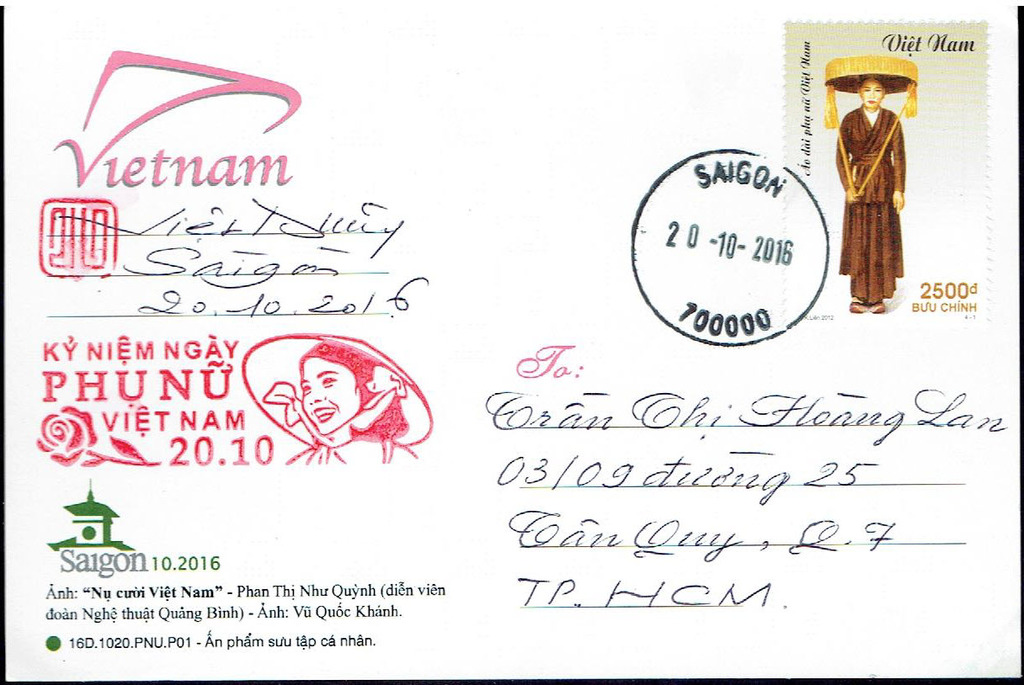 Vietnam
Việt Thùy
Sàigòn
20.10.2016
KỶ NIỆM NGÀY
PHỤ NỮ
VIỆT NAM
20.10
Saigon 10.2016
Ảnh: “Nụ cười Việt Nam” - Phan Thị Như Quỳnh (diễn viên
đoàn Nghệ thuật Quảng Bình) - Ảnh: Vũ Quốc Khánh.
16D.1020.PNU.P01 - Ấn phẩm sưu tập cá nhân.
Việt Nam
Áo dài phụ nữ Việt Nam
2500đ
BƯU CHÍNH
4 - 1
2012
SAIGON
20-10-2016
700000
To:
Trần Thị Hoàng Lan
03/09 đường 25
Tân Quy, Q.7
TP. HCM.